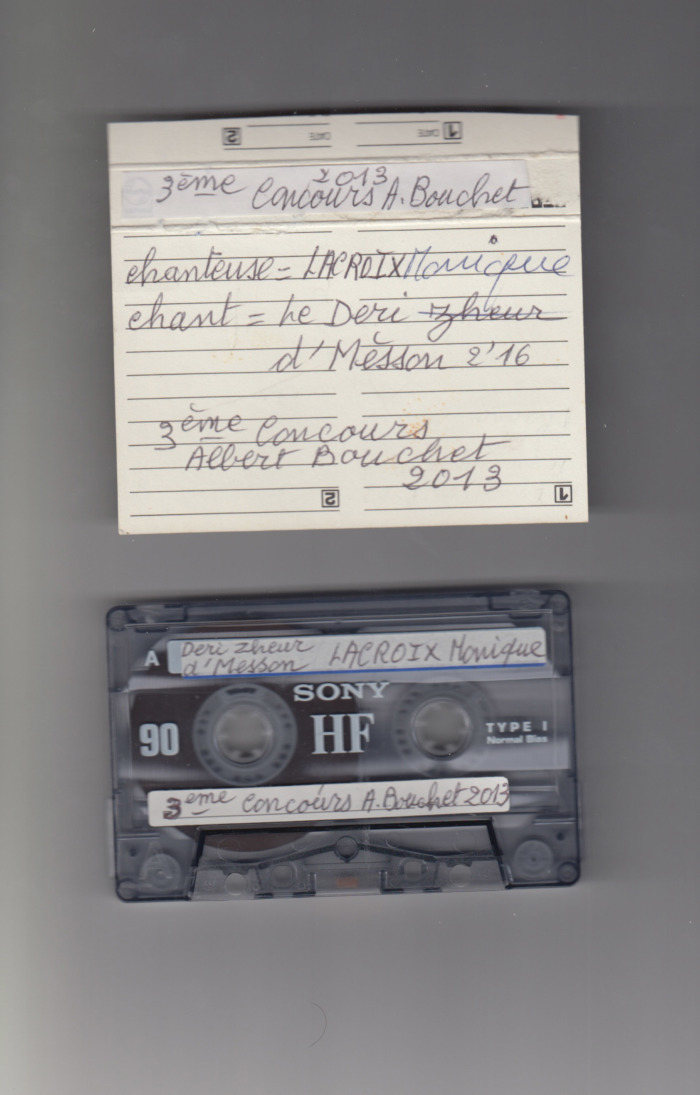 2 DATE DATE 1
2013
3ème Concours A. Bouchet
chanteuse = LACROIX Monique
chant = Le Deri zheur
d' Mèsson 2'16
3ème Concours
Albert Bouchet
2013
2 1
A Deri zheur
d'Messon LACROIX Monique
SONY
90 HF TYPE I
Normal Bias
3eme Concours A. Bouchet 2013